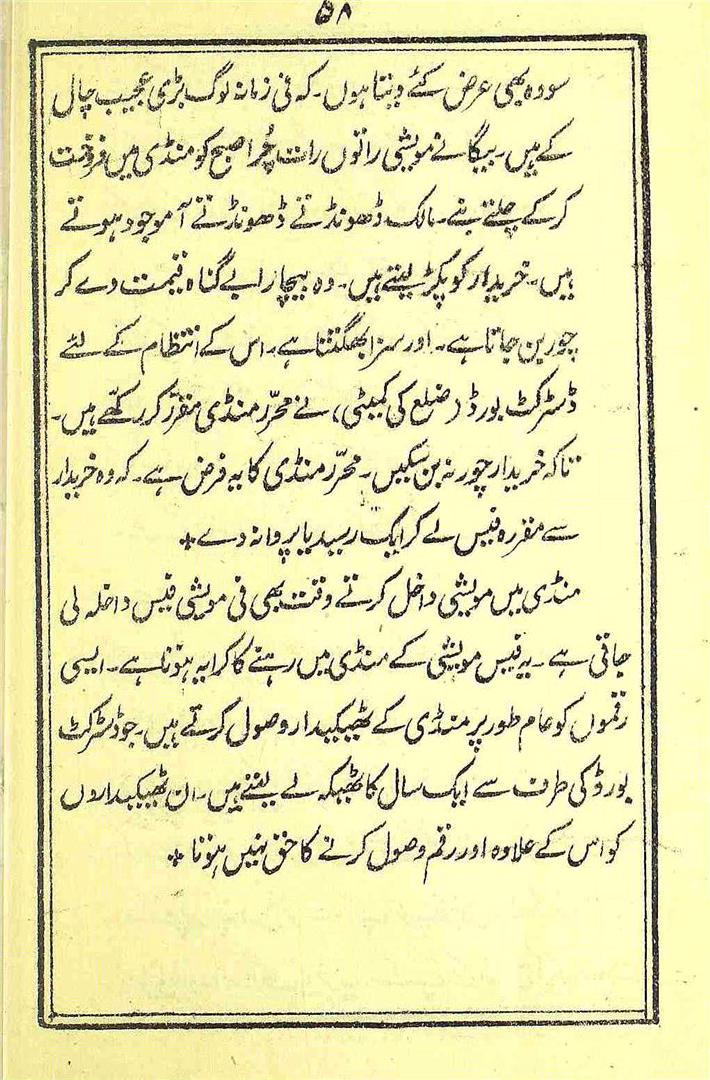 ۵۸
سو وہ بھی عرض کئے دیتا ہوں۔ کہ فی زمانہ لوگ بڑی عجیب چال
کے ہیں۔ بیگانے مویشی راتوں رات چُرا صبح کو منڈی میں فروخت
کر کے چلتے بنے۔ مالک ڈھونڈتے ڈھونڈتے آ موجود ہوتے
ہیں۔ خریدار کو پکڑ لیتے ہیں۔ وہ بیچارا بے گناہ قیمت دے کر
چور بن جاتا ہے۔ اور سزا بھگتتا ہے۔ اس کے انتظام کے لئے
ڈسٹرکٹ بورڈ (ضلع کی کمیٹی) نے محرّر منڈی مقرّر کر رکھے ہیں۔
تاکہ خریدار چور نہ بن سکیں۔ محرّر منڈی کا یہ فرض ہے۔ کہ وہ خریدار
سے مقررہ فیس لے کر ایک رسید یا پروانہ دے *
منڈی میں مویشی داخل کرتے وقت بھی فی مویشی فیس داخلہ لی
جاتی ہے۔ یہ فیس مویشی کے منڈی میں رہنے کا کرایہ ہوتا ہے۔ ایسی
رقموں کو عام طور پر منڈی کے ٹھیکیدار وصول کرتے ہیں۔ جو ڈسٹرکٹ
بورڈ کی طرف سے ایک سال کا ٹھیکہ لے لیتے ہیں۔ ان ٹھیکیداروں
کو اس کے علاوہ اور رقم وصول کرنے کا حق نہیں ہوتا *